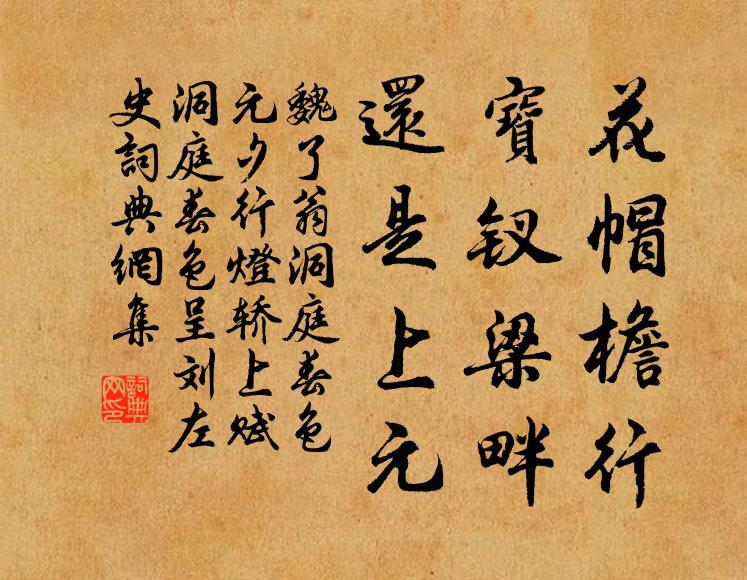 花帽檐行
寶钗梁畔
還是上元
魏了翁洞庭春色
元夕行燈轿上赋
洞庭春色呈刘左
史詞典網集
詞典网印